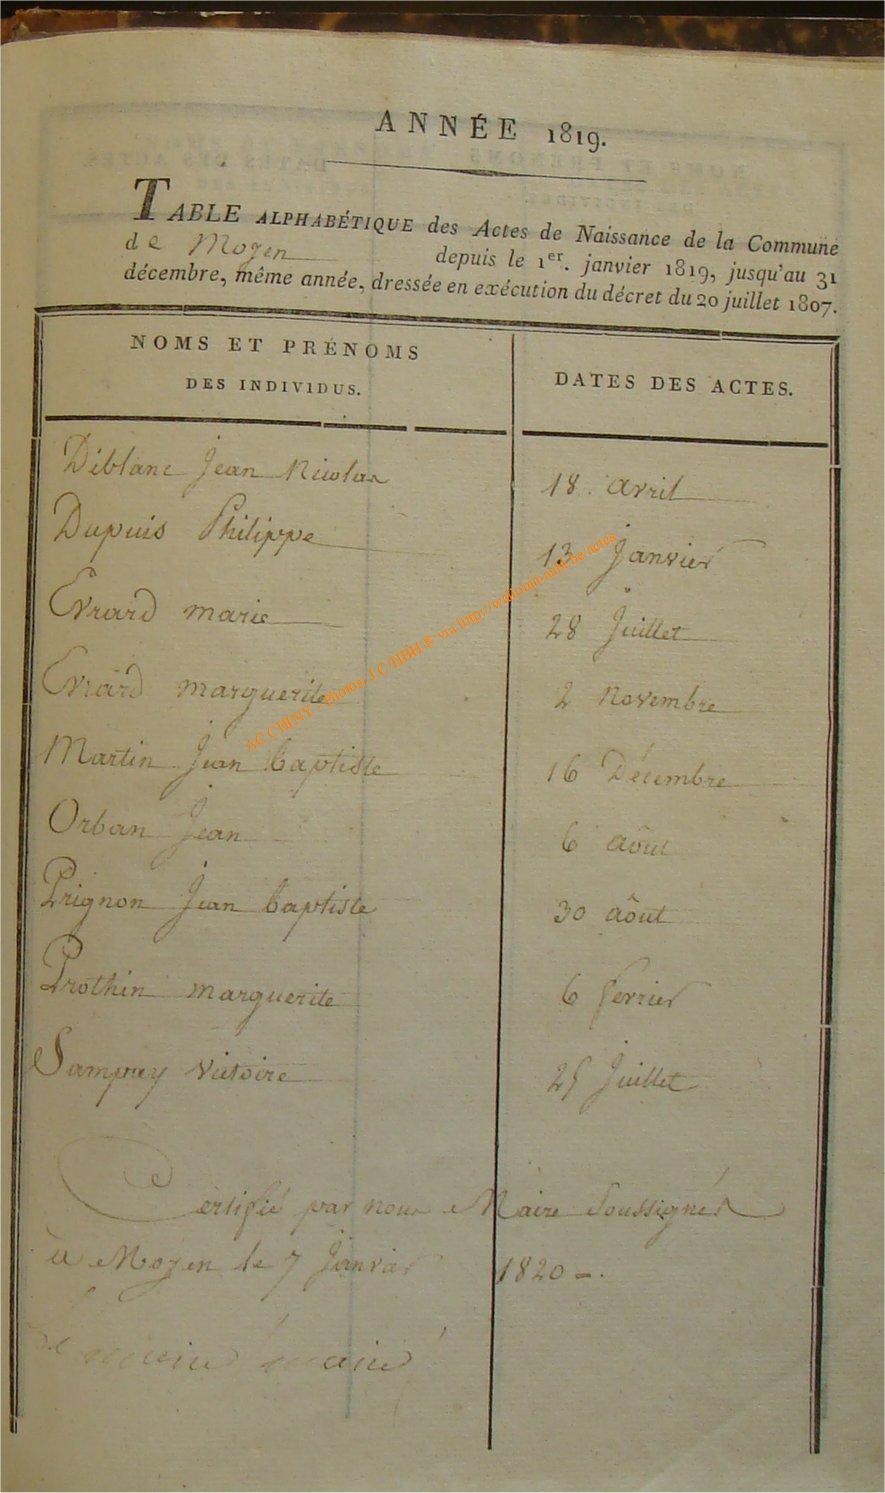 ANNÉE 1819.
TABLE ALPHABÉTIQUE des Actes de Naissance de la Commune
de Moyen depuis le 1er. janvier 1819, jusqu'au 31
décembre, même année, dressée en exécution du décret du 20 juillet 1807.
NOMS ET PRÉNOMS
DES INDIVIDUS.
DATES DES ACTES.
Deblanc Jean Nicolas 18. avril
Dupuis Philippe 13 Janvier
Evrard marie 28 Juillet
Evrard marguerite 2 Novembre
Martin Jean baptiste 16 Décembre
Orban Jean 6 aôut
Prignon Jean baptiste 30 aôut
Prothin marguerite 6 fevrier
Sampuy Victoire 25 Juillet
Certifié par nous Maire Soussignés
a Moyen le 7 Janvier 1820 -.
maire